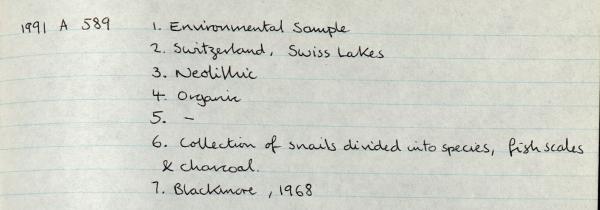 1991 A 589 1. Environmental Sample
2. Switzerland, Swiss Lakes
3. Neolithic
4. Organic
5. –
6. Collection of snails divided into species, fish scales
& charcoal.
7. Blackmore, 1968